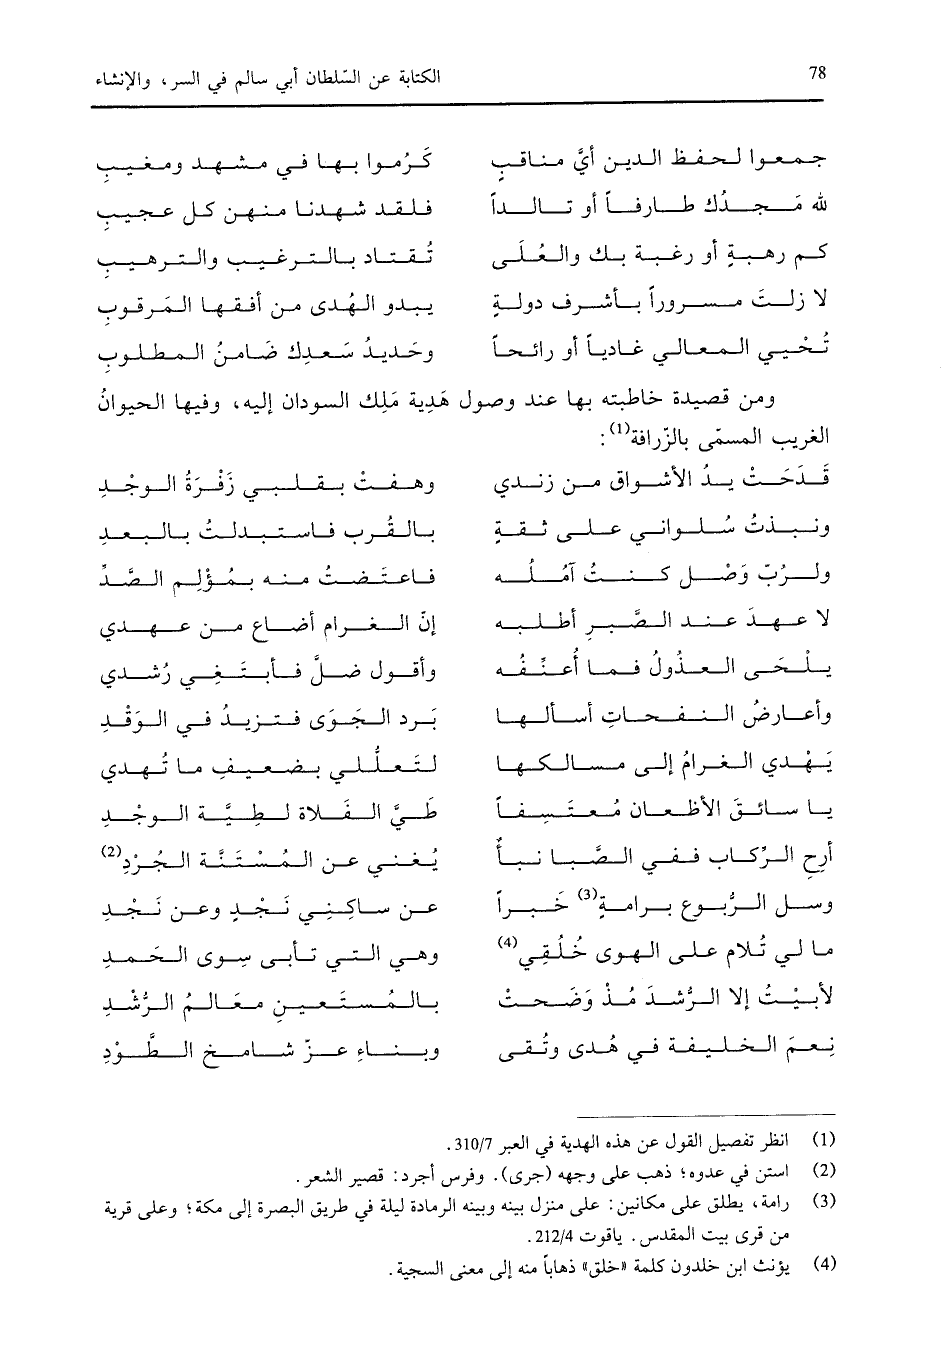 78
الكتابة عن السّلطان أبي سالم في السر، والإنشاء
جمعوا لحفظ الدين أيَّ مناقب كرُموا بها في مشهد ومغيب
لله مجدُك طارفاً أو تالداً فلقد شهدنا منه كل عجيب
كم رهبة أو رغبة بك والعُلى تُقتاد بالترغيب والترهيب
لا زلت مسروراً بأشرف دولة يبدو الهُدى من أفقها المرقوب
تُحيي المعالي غادياً أو رائحاً وجديدُ سعدك ضامنُ المطلوب
ومن قصيدة خاطبته بها عند وصول هَدية مَلِك السودان إليه، وفيها الحيوانُ
الغريب المسمَّى بالزَّرافة(1):
قدَحت يدُ الأشواق من زندي وهفَت بقلبي زَفْرةُ الوجد
ونبذتُ سُلواني على ثقة بالقُرب فاستبدلتُ بالبعد
ولرُبّ وصل كنتُ آمُله فاعتضتُ منه بمُؤلم الصَّد
لا عهد عند الصبر أطلبه إن الغرام أضاع من عهدي
يلحى العذولُ فما أعنِّفُه وأقول ضلَّ فأبتغي رُشدي
وأعارضُ النفحات أسألها بردَ الجَوى فتزيدُ في الوَقد
يُهدي الغرامُ إلى مسالكها لتعلُّلي بضعيف ما تُهدي
يا سائقَ الأظعان مُعتسفاً طيَّ الفَلاة لطيَّة الوجد
أرح الرِّكاب ففي الصَّبا نبأ يُغني عن المُستَنَّة الجُرْد(2)
وسل الرُّبوع برامةٍ(3) خبراً عن ساكني نجد وعن نجد
ما لي تُلام على الهوى خُلُقي(4) وهي التي تأبى سوى الحمد
لأبيتُ إلا الرُّشدَ مُذ وضَحت بالمُستعين معالمُ الرُّشد
نعم الخليفة في هُدى وتُقى وبناءِ عزّ شامخ الطَّوْد
(1) انظر تفصيل القول عن هذه الهدية في العبر 310/7.
(2) استن في عدوه؛ ذهب على وجهه (جرى). وفرس أجرد: قصير الشعر.
(3) رامة، يطلق على مكانين: على منزل بينه وبينه الرمادة ليلة في طريق البصرة إلى مكة؛ وعلى قرية
من قرى بيت المقدس. ياقوت 212/4.
(4) يؤنث ابن خلدون كلمة «خلق» ذهاباً منه إلى معنى السجية.